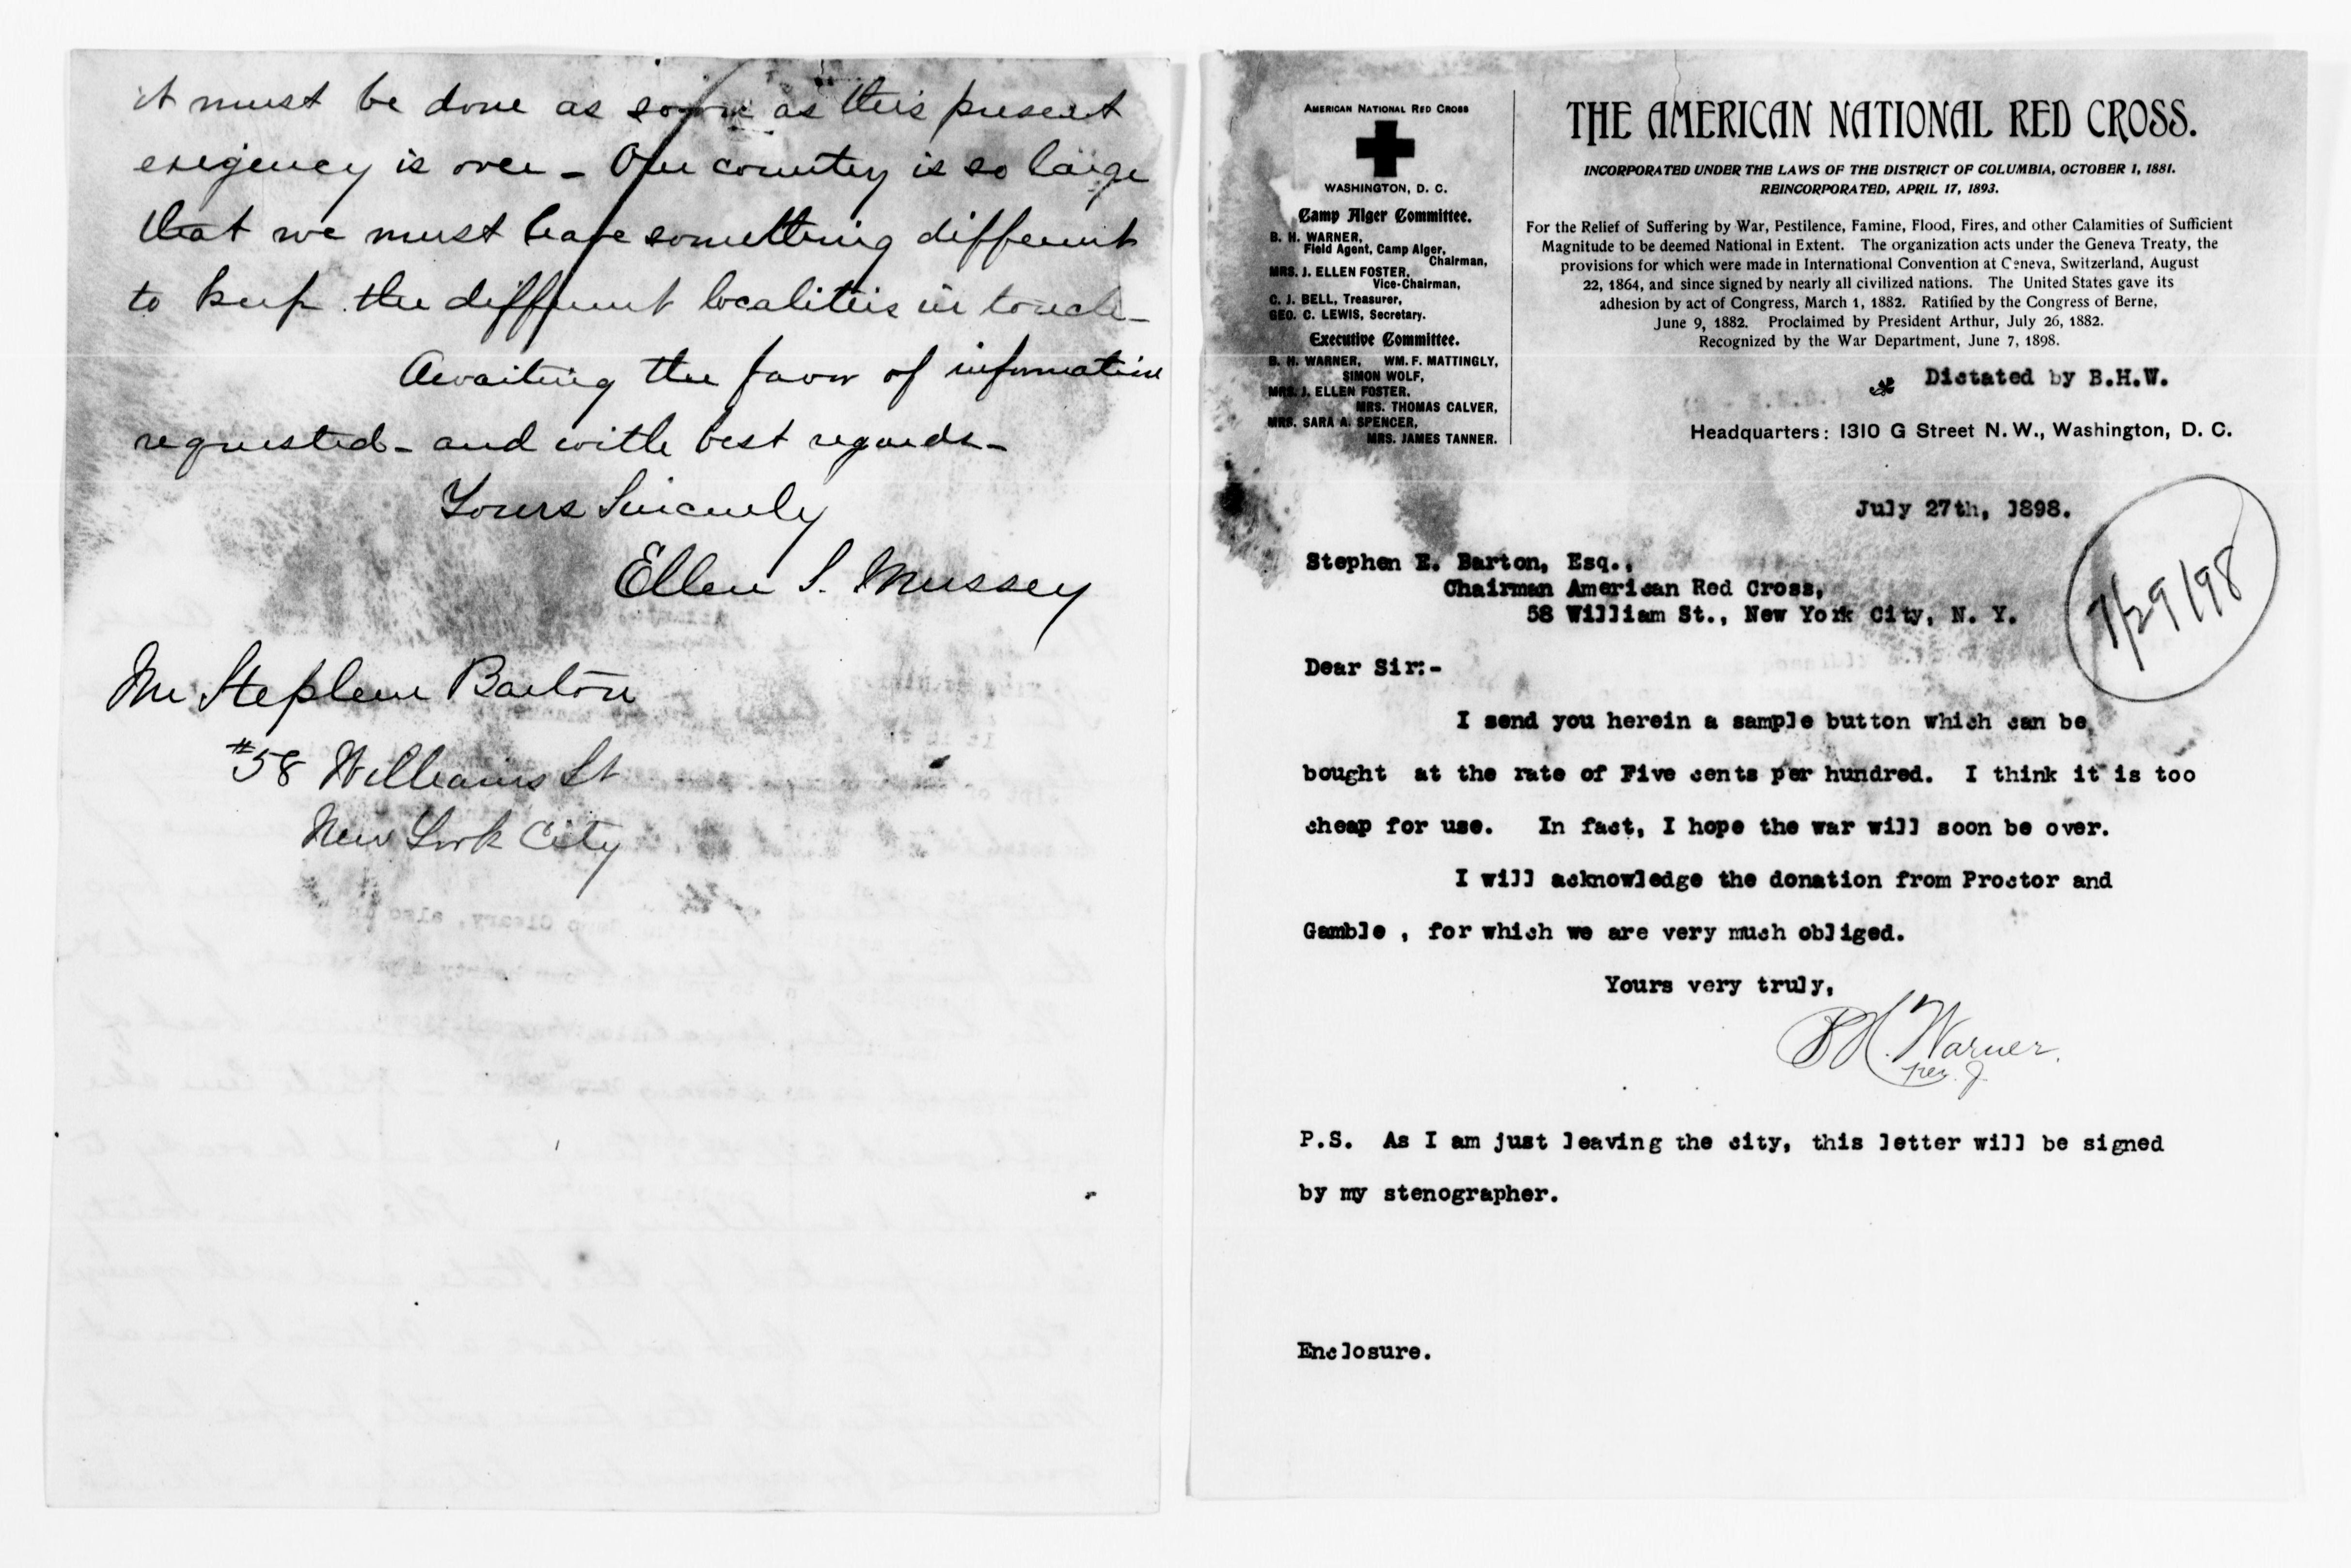 it must be done as soon as this present
exigency is over - Our country is so large
that we must have something different
to keep the different localities in touch -
Awaiting the favor of information
requested - and with best regards -
Yours Sincerely
Ellen S. Mussey
Mr Stephen Barton
#58 Williams St
New York City
AMERICAN NATIONAL RED CROSS
WASHINGTON, D. C.
Camp Alger Committee.
B. H. WARNER,
Field Agent, Camp Alger,
Chairman,
MRS. J. ELLEN FOSTER,
Vice-Chairman,
C. J. BELL, Treasurer,
GEO. C. LEWIS, Secretary.
Executive Committee.
B. H. WARNER, WM. F. MATTINGLY,
SIMON WOLF,
MRS. J. ELLEN FOSTER,
MRS. THOMAS CALVER,
MRS. SARA A. SPENCER,
MRS. JAMES TANNER.
THE AMERICAN NATIONAL RED CROSS.
INCORPORATED UNDER THE LAWS OF THE DISTRICT OF COLUMBIA, OCTOBER 1, 1881.
REINCORPORATED, APRIL 17, 1893.
For the Relief of Suffering by War, Pestilence, Famine, Flood, Fires, and other Calamities of Sufficient
Magnitude to be deemed National in Extent. The organization acts under the Geneva Treaty, the
provisions for which were made in International Convention at Geneva, Switzerland, August
22, 1864, and since signed by nearly all civilized nations. The United States gave its
adhesion by act of Congress, March 1, 1882. Ratified by the Congress of Berne,
June 9, 1882. Proclaimed by President Arthur, July 26, 1882.
Recognized by the War Department, June 7, 1898.
Dictated by B.H.W.
Headquarters: 1310 G Street N. W., Washington, D. C.
July 27th, 1898.
7/29/98
Stephen E. Barton, Esq.,
Chairman American Red Cross,
58 William St., New York City, N. Y.
Dear Sir:-
I send you herein a sample button which can be
bought at the rate of Five cents per hundred. I think it is too
cheap for use. In fact, I hope the war will soon be over.
I will acknowledge the donation from Proctor and
Gamble , for which we are very much obliged.
Yours very truly,
B H. Warner.
per. J.
P.S. As I am just leaving the city, this letter will be signed
by my stenographer.
Enclosure.